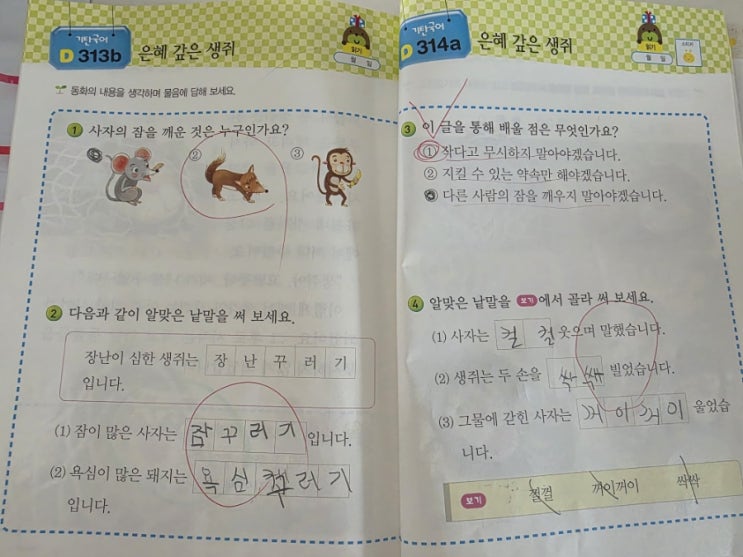 기탄국어
D 313b 은혜 갚은 생쥐
읽기
월 일
동화의 내용을 생각하며 물음에 답해 보세요.
1 사자의 잠을 깨운 것은 누구인가요?
② ③
2 다음과 같이 알맞은 낱말을 써 보세요.
장난이 심한 생쥐는 장 난 꾸 러 기
입니다.
(1) 잠이 많은 사자는 잠 꾸 러 기 입니다.
(2) 욕심이 많은 돼지는 욕 심 꾸 러 기
입니다.
기탄국어
D 314a 은혜 갚은 생쥐
읽기
월 일
3 이 글을 통해 배울 점은 무엇인가요?
① 작다고 무시하지 말아야겠습니다.
② 지킬 수 있는 약속만 해야겠습니다.
다른 사람의 잠을 깨우지 말아야겠습니다.
4 알맞은 낱말을 보기 에서 골라 써 보세요.
(1) 사자는 껄 껄 웃으며 말했습니다.
(2) 생쥐는 두 손을 싹 싹 빌었습니다.
(3) 그물에 갇힌 사자는 꺼 이 꺼 이 울었습
니다.
보기 껄껄 꺼이꺼이 싹싹